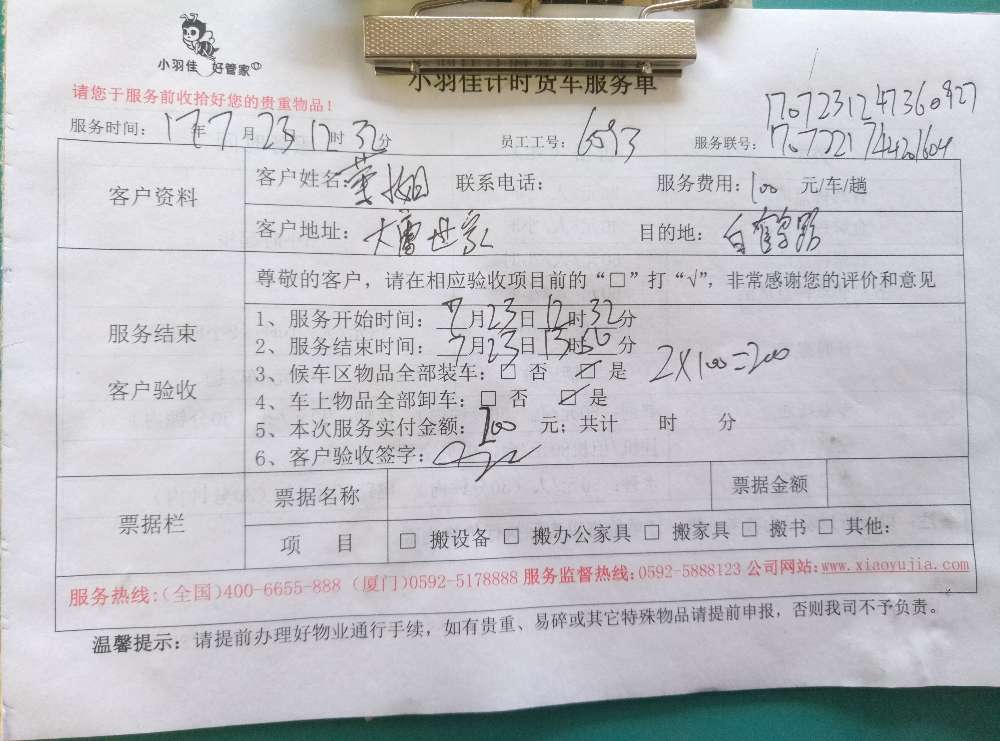 小羽佳 好管家
小羽佳计时货车服务单
请您于服务前收拾好您的贵重物品！
1707231247360927
服务时间：17年7月23 12时32分 员工工号：6593 服务联号：
客户资料 客户姓名： 联系电话： 服务费用：100 元/车/趟
客户地址：大唐世家 目的地：
尊敬的客户，请在相应验收项目前的“□”打“√”，非常感谢您的评价和意见
服务结束
客户验收
1、服务开始时间：7月23日12时32分
2、服务结束时间：7月23日13时50分
3、候车区物品全部装车：□ 否 ☑ 是 2×100=200
4、车上物品全部卸车：□ 否 ☑ 是
5、本次服务实付金额：100 元；共计 时 分
6、客户验收签字：
票据栏 票据名称 票据金额
项 目 □ 搬设备 □ 搬办公家具 □ 搬家具 □ 搬书 □ 其他：
服务热线：(全国)400-6655-888 (厦门)0592-5178888 服务监督热线：0592-5888123 公司网站：www.xiaoyujia.com
温馨提示：请提前办理好物业通行手续，如有贵重、易碎或其它特殊物品请提前申报，否则我司不予负责。